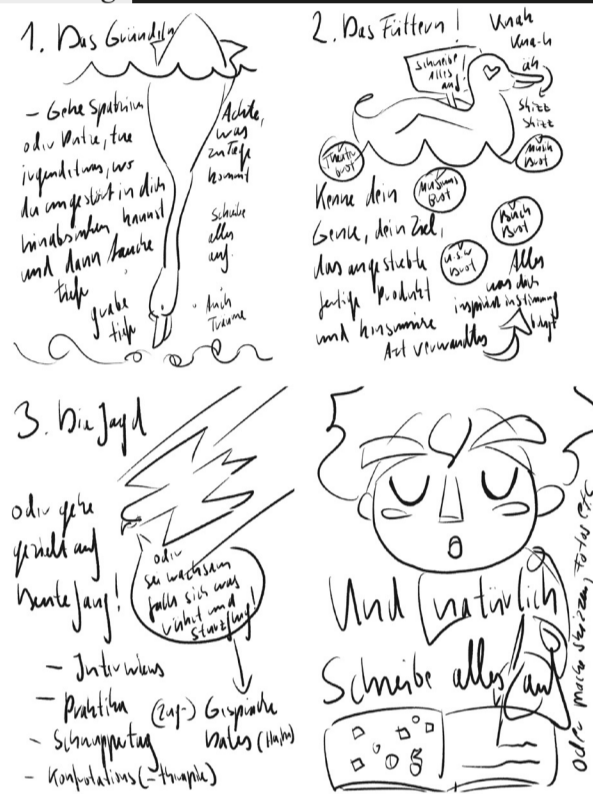 1. Das Gründeln
– Gehe spatzieren
oder Putze, tue
irgendetwas, wo
du ungestört in dich
hinabsinken kannst
und dann tauche
tiefe
grabe
tiefe
Achte,
was
zu Tage
kommt
Schreibe
alles
auf.
Auch
Träume
2. Das Füttern!
Knah
Kna-h
äh
Schreibe
alles
auf!
Theater
Brot
Museums
Brot
Musik
Brot
Buch
Brot
u.s.w
Brot
Kenne dein
Genre, dein Ziel,
das angestrebte
fertige Produkt
und konsumiere
Art verwandtes
Alles
was dich
inspiriert in Stimmung
bringt
3. Die Jagd
oder gehe
gezielt auf
Beutefang!
oder
sei wachsam
falls sich was
rührt und
Sturzflug!
– Interviews
– Praktika
– Schnuppertag
– Konfrontations (=therapie)
(Zug-) Gespräche
Und natürlich
Schreibe alles auf
oder mache Skizzen, Fotos etc